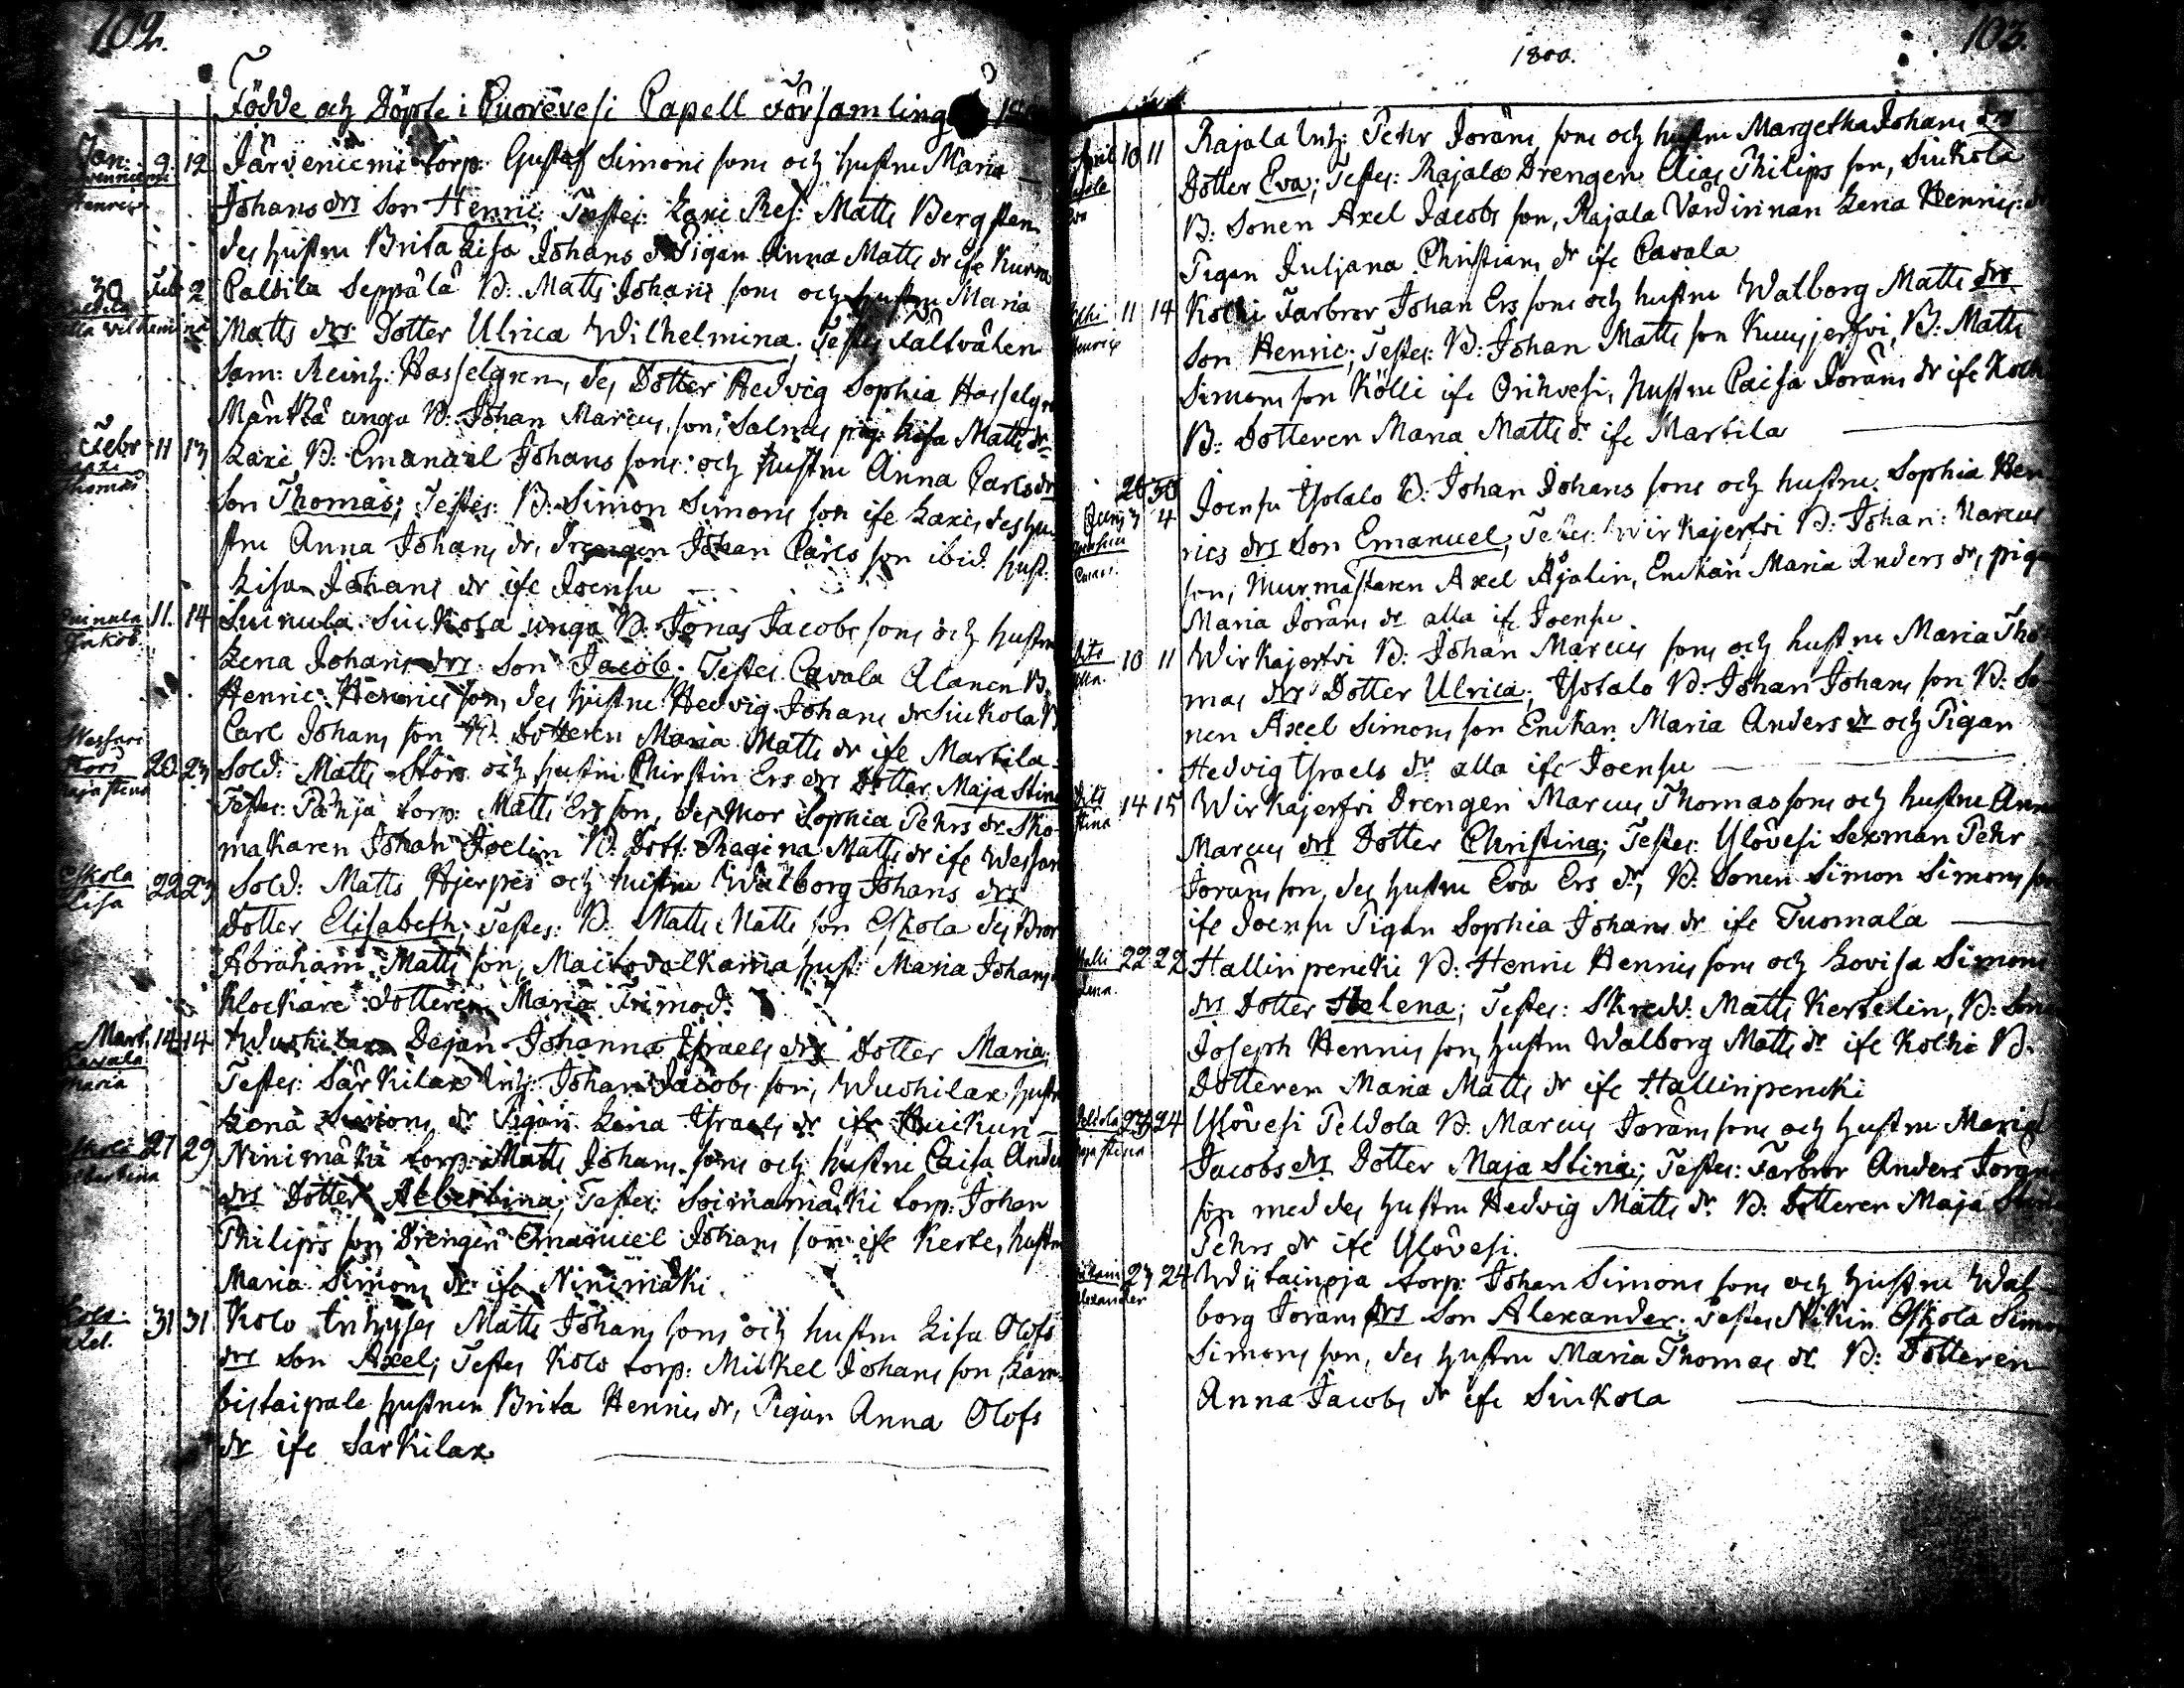 102.
Födde och Döpte i Cuorevesi Capell Församling
Jan. 9. 12 Järveniemi Torp: Gustaf Simons sons och hustru Maria
Henric Johans drs Son Henric; Testes: Laxi Res: Matts Bergsten
des hustru Brita Lisa Johans d Pigan Anna Matts dr ife
30 Feb 2 Paldila Seppälä B: Matts Johans sons och hustru Maria
Matts drs Dotter Ulrica Wilhelmina; Testes Fältvälen
Sam: Reinh: Hasselgren, des Dotter Hedvig Sophia Hasselgr
Mänttä unga B: Johan Marcus son, Salmes pig: Lisa Matts dr
Febr 11 13 Laxi B: Emanuel Johans sons och hustru Anna Carls dr
Thomas Son Thomas; Testes: B: Simon Simons son ife Laxi, des hu
stru Anna Johans dr, Drengen Johan Carls son ibid. hust:
Lisa Johans dr ife Joensu
Suinula 11. 14 Suinula Siukola unga B: Jonas Jacobs sons och hustru
Jakob Lena Johans drs Son Jacob; Testes Cavala Alanen B.
Henric Henrics son, des hustru Hedvig Johans dr Siukola B
Carl Johans son B: Dotteren Maria Matts dr ife Martila
Stors 20 23 Sold: Matts Stors och hustru Christin Ers drs Dotter Maja Stina
Maja Stina Testes: Pohja torp: Matts Ers son, des Mor Sophia Pehrs dr Sko-
makaren Johan Joelin B. Dott: Ragina Matts dr ife Wessari
Eskola 22 23 Sold: Matts Hjerpes och hustru Walborg Johans drs
Lisa Dotter Elisabeth; Testes: B: Matts Matts son Eskola des Bror
Abraham Matts son, Maitovalkama hust: Maria Johans
Klockare dotteren Maria Frimod:
Mart. 14 14 Wuohilax Dejan Johanna Israels drs Dotter Maria;
Maria Testes: Särkilax Inh: Johan Jacobs son, Wuohilax hustr
Lena Simons dr Pigan Lena Israels dr ife
27 29 Ninimäki torp: Matts Johans sons och hustru Caisa Ande
Albertina drs Dotter Albertina; Testes: Soimamäki torp: Johan
Philips son Drengen Emanuel Johans son ife Kerte, hustru
Maria Simons dr ife Ninimäki
Kolo 31 31 Kolo Inhyses Matts Johans sons och hustru Lisa Olofs
Axel. drs Son Axel; Testes Kolo torp: Mickel Johans son, Lam-
bistaipale hustrun Brita Henrics dr, Pigan Anna Olofs
dr ife Särkilax
103.
1800.
April 10 11 Rajala Inh: Pehr Jörans sons och hustru Margetha Johans drs
Eva Dotter Eva; Testes: Rajala Drengen Elias Philips son, Siukola
B: Sonen Axel Jacobs son, Rajala Värdinnan Lena Henrics d
Pigan Juljana Christians dr ife Cavala
Kolhi 11 14 Kolhi Farbror Johan Ers sons och hustru Walborg Matts drs
Henric Son Henric; Testes: B: Johan Matts son Kuusjerfvi, B: Matts
Simons son Kölli ife Orihvesi, hustru Caisa Jörans dr ife
B: Dotteren Maria Matts dr ife Martila
26 30
Junij 3 4 Joensu Ylotalo B: Johan Johans sons och hustru Sophia Hen
Joensu rics drs Son Emanuel; Testes: Wirkajerfvi B: Johan: Marcus
Eman. son, Murmästaren Axel Ajalin, Enckan Maria Anders dr, piga
Maria Jörans dr alla ife Joensu
10 11 Wirkajerfvi B: Johan Marcus sons och hustru Maria Tho
mas drs Dotter Ulrica; Ylotalo B: Johan Johans son B: So
nen Axel Simons son Enckan Maria Anders dr och Pigan
Hedvig Israels dr alla ife Joensu
14 15 Wirkajerfvi Drengen Marcus Thomas sons och hustru Ann
Stina Marcus drs Dotter Christina; Testes: Ylövesi Sexman Pehr
Jörans son, des hustru Eva Ers dr, B: Sonen Simon Simons son
ife Joensu Pigan Sophia Johans dr ife Tuomala
Halli 22 22 Hallinpenckki B: Henric Henrics sons och Lovisa Simons
Lena. drs Dotter Helena; Testes: Skredd: Matts Kertelin, B: Son
Joseph Henrics son, hustru Walborg Matts dr ife Kolhi B:
Dotteren Maria Matts dr ife Hallinpencki
Peldola 23 24 Ylövesi Peldola B: Marcus Jörans sons och hustru Maria
Maja Stina Jacobs drs Dotter Maja Stina; Testes: Farbror Anders Jörans
son med des hustru Hedvig Matts dr B: Dotteren Maja Stina
Pehrs dr ife Ylövesi.
23 24 Wiitainoja torp: Johan Simons sons och hustru Wal-
Alexander borg Jörans drs Son Alexander; Testes Eskola Simon
Simons son, des hustru Maria Thomas dr B: Dotteren
Anna Jacobs dr ife Siukola